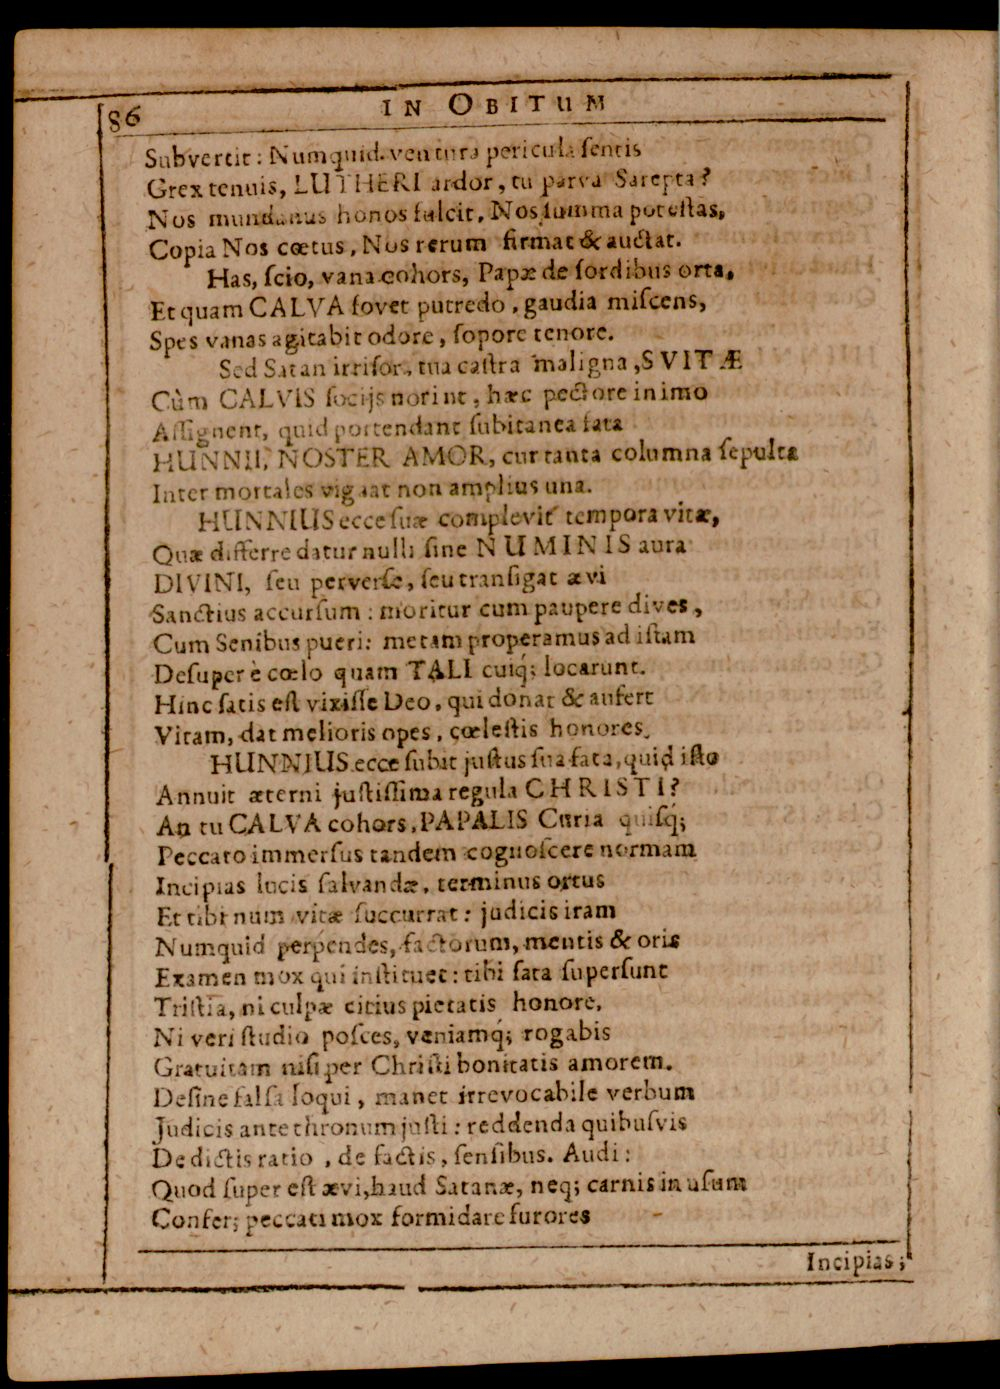 86
IN OBITUM
Subvertit: Numquid ventura pericula ſentis
Grex tenuis, LUTHERI ardor, tu parva Sarepta?
Nos mundanus honos fulcit, Nos ſumma poteſtas,
Copia Nos cœtus, Nos rerum firmat & auctat.
Has, ſcio, vana cohors, Papæ de ſordibus orta,
Et quam CALVA fovet putredo, gaudia miſcens,
Spes vanas agitabit odore, ſopore tenore.
Sed Satan irriſor, tua caſtra maligna, SVITÆ
Cùm CALVIS ſocijs norint, hæc pectore in imo
Aſſignent, quid portendant ſubitanea fata
HUNNII, NOSTER AMOR, cur tanta columna ſepulta
Inter mortales vigeat non amplius una.
HUNNIUS ecce ſuæ complevit tempora vitæ,
Quæ differre datur nulli ſine NUMINIS aura
DIVINI, ſeu perverſe, ſeu tranſigat ævi
Sanctius accurſum: moritur cum paupere dives,
Cum Senibus pueri: metam properamus ad iſtam
Deſuper è cœlo quam TALI cuiq́; locarunt.
Hinc ſatis eſt vixiſſe Deo, qui donat & aufert
Vitam, dat melioris opes, cœleſtis honores.
HUNNIUS ecce ſubit juſtus ſua fata, quid iſto
Annuit æterni juſtiſſima regula CHRISTI?
An tu CALVA cohors, PAPALIS Curia quiſq́;
Peccato immerſus tandem cognoſcere normam
Incipias lucis ſalvandæ, terminus ortus
Et tibi num vitæ ſuccurrat: judicis iram
Numquid perpendes, factorum, mentis & oris
Examen mox qui inſtituet: tibi fata ſuperſunt
Triſtia, ni culpæ citius pietatis honore,
Ni veri ſtudio poſces, veniamq́; rogabis
Gratuitam niſi per Chriſti bonitatis amorem.
Deſine falſa loqui, manet irrevocabile verbum
Judicis ante thronum juſti: reddenda quibuſvis
De dictis ratio, de factis, ſenſibus. Audi:
Quod ſuper eſt ævi, haud Satanæ, neq; carnis in uſum
Confer; peccati mox formidare furores
Incipias;